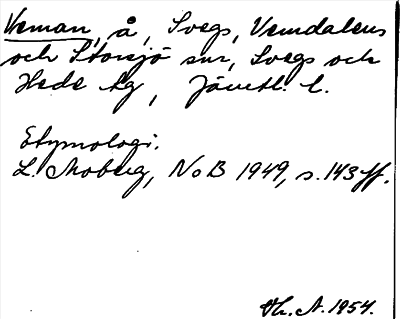 Veman, å, Svegs, Vemdalens
och Storsjö snr, Svegs och
Hede tg, Jämtl. l.
Etymologi.
L. Moberg, NoB 1949, s. 143 ff.
Vh. A. 1954.